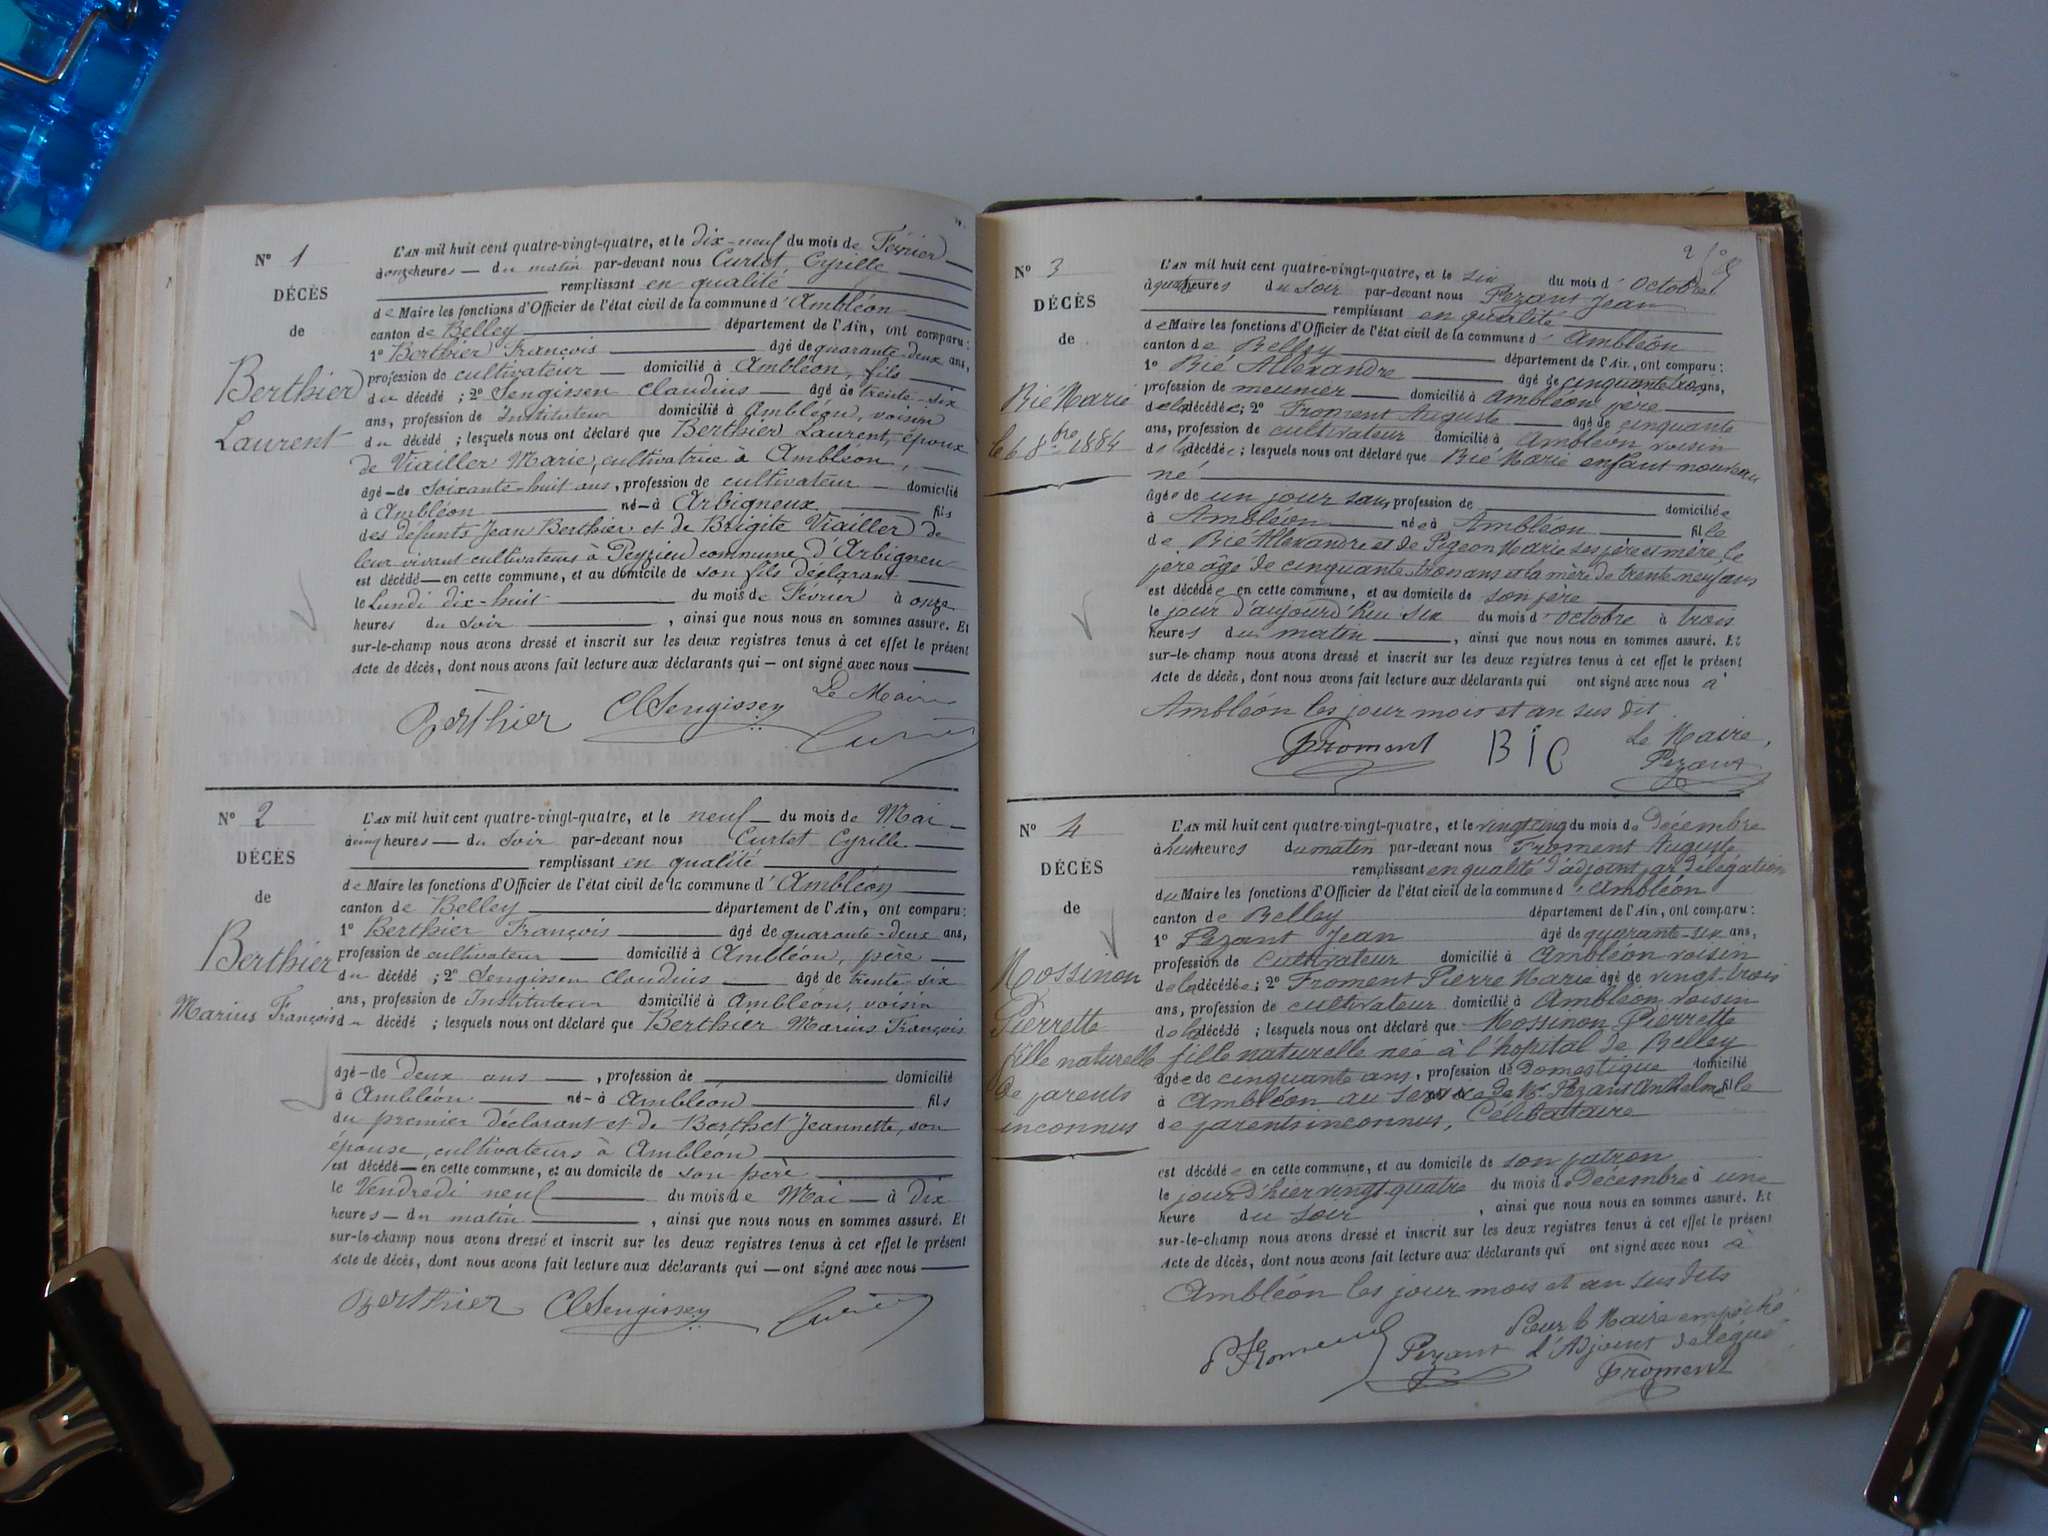 N° 1
DÉCÈS
de
Berthier
Laurent
L'AN mil huit cent quatre-vingt-quatre, et le dix-neuf du mois de Février
à onze heures du matin par-devant nous Curtet Cyrille
remplissant en qualité
de Maire les fonctions d'Officier de l'état civil de la commune d'Ambléon
canton de Belley département de l'Ain, ont comparu:
1° Berthier François âgé de quarante-deux ans,
profession de cultivateur domicilié à Ambléon, fils
du décédé ; 2° Sengissen Claudius âgé de trente-six
ans, profession de Instituteur domicilié à Ambléon, voisin
du décédé ; lesquels nous ont déclaré que Berthier Laurent, époux
de Viailler Marie, cultivatrice à Ambléon,
âgé de soixante-huit ans, profession de cultivateur domicilié
à Ambléon né à Arbigneux fils
des défunts Jean Berthier et de Brigite Viailler de
leur vivant cultivateurs à Peyzieu commune d'Arbigneu
est décédé en cette commune, et au domicile de son fils déclarant
le Lundi dix-huit du mois de Février à onze
heures du soir, ainsi que nous nous en sommes assuré. Et
sur-le-champ nous avons dressé et inscrit sur les deux registres tenus à cet effet le présent
Acte de décès, dont nous avons fait lecture aux déclarants qui — ont signé avec nous
Le Maire
Berthier Cl Sengissey
N° 2
DÉCÈS
de
Berthier
Marius François
L'AN mil huit cent quatre-vingt-quatre, et le neuf du mois de Mai
à cinq heures du soir par-devant nous Curtet Cyrille
remplissant en qualité
de Maire les fonctions d'Officier de l'état civil de la commune d'Ambléon
canton de Belley département de l'Ain, ont comparu:
1° Berthier François âgé de quarante-deux ans,
profession de cultivateur domicilié à Ambléon, père
du décédé ; 2° Sengissen Claudius âgé de trente six
ans, profession de Instituteur domicilié à Ambléon, voisin
du décédé ; lesquels nous ont déclaré que Berthier Marius François
âgé de deux ans, profession de domicilié
à Ambléon né à Ambléon fils
du premier déclarant et de Berthet Jeannette, son
épouse, cultivateurs à Ambléon
est décédé en cette commune, et au domicile de son père
le Vendredi neuf du mois de Mai à dix
heures du matin, ainsi que nous nous en sommes assuré. Et
sur-le-champ nous avons dressé et inscrit sur les deux registres tenus à cet effet le présent
Acte de décès, dont nous avons fait lecture aux déclarants qui — ont signé avec nous
Berthier Cl Sengissey
2
N° 3
DÉCÈS
de
Bié Marie
le 6 8bre 1884
L'AN mil huit cent quatre-vingt-quatre, et le six du mois d'Octobre
à quatre heures du soir par-devant nous Pezant Jean
remplissant en qualité
de Maire les fonctions d'Officier de l'état civil de la commune d'Ambléon
canton de Belley département de l'Ain, ont comparu:
1° Bié Alléxandre âgé de cinquante trois ans,
profession de meunier domicilié à Ambléon père
de la décédée ; 2° Froment Auguste âgé de cinquante
ans, profession de cultivateur domicilié à Ambléon voisin
de la décédée ; lesquels nous ont déclaré que Bié Marie enfant nouveau
né
âgée de un jour sans profession de domiciliée
à Ambléon née à Ambléon fille
de Bié Alléxandre et de Pigeon Marie ses père et mère, le
père âgé de cinquante-trois ans et la mère de trente-neuf ans
est décédée en cette commune, et au domicile de son père
le jour d'aujourd'hui six du mois d'octobre à trois
heures du matin, ainsi que nous nous en sommes assuré. Et
sur-le-champ nous avons dressé et inscrit sur les deux registres tenus à cet effet le présent
Acte de décès, dont nous avons fait lecture aux déclarants qui ont signé avec nous à
Ambléon les jour mois et an sus dit
Froment Bié Le Maire,
Pezant
N° 4
DÉCÈS
de
Mossinon
Pierrette
fille naturelle
de parents
inconnus
L'AN mil huit cent quatre-vingt-quatre, et le vingt cinq du mois de Décembre
à huit heures du matin par-devant nous Froment Auguste
remplissant en qualité d'adjoint par délégation
du Maire les fonctions d'Officier de l'état civil de la commune d'Ambléon
canton de Belley département de l'Ain, ont comparu:
1° Pezant Jean âgé de quarante-six ans,
profession de cultivateur domicilié à Ambléon voisin
de la décédée ; 2° Froment Pierre Marie âgé de vingt-trois
ans, profession de cultivateur domicilié à Ambléon, voisin
de la décédé ; lesquels nous ont déclaré que Mossinon Pierrette
fille naturelle née à l'hopital de Belley
âgée de cinquante ans, profession de Domestique domicilié
à Ambléon au service de Mr Pezant Anthelme fille
de parents inconnus, Célibattaire
est décédée en cette commune, et au domicile de son patron
le jour d'hier vingt-quatre du mois de Décembre à une
heure du soir, ainsi que nous nous en sommes assuré. Et
sur-le-champ nous avons dressé et inscrit sur les deux registres tenus à cet effet le présent
Acte de décès, dont nous avons fait lecture aux déclarants qui ont signé avec nous à
Ambléon les jour mois et an sus dits
Pour le Maire empêché
Froment Pezant l'Adjoint délégué
Froment